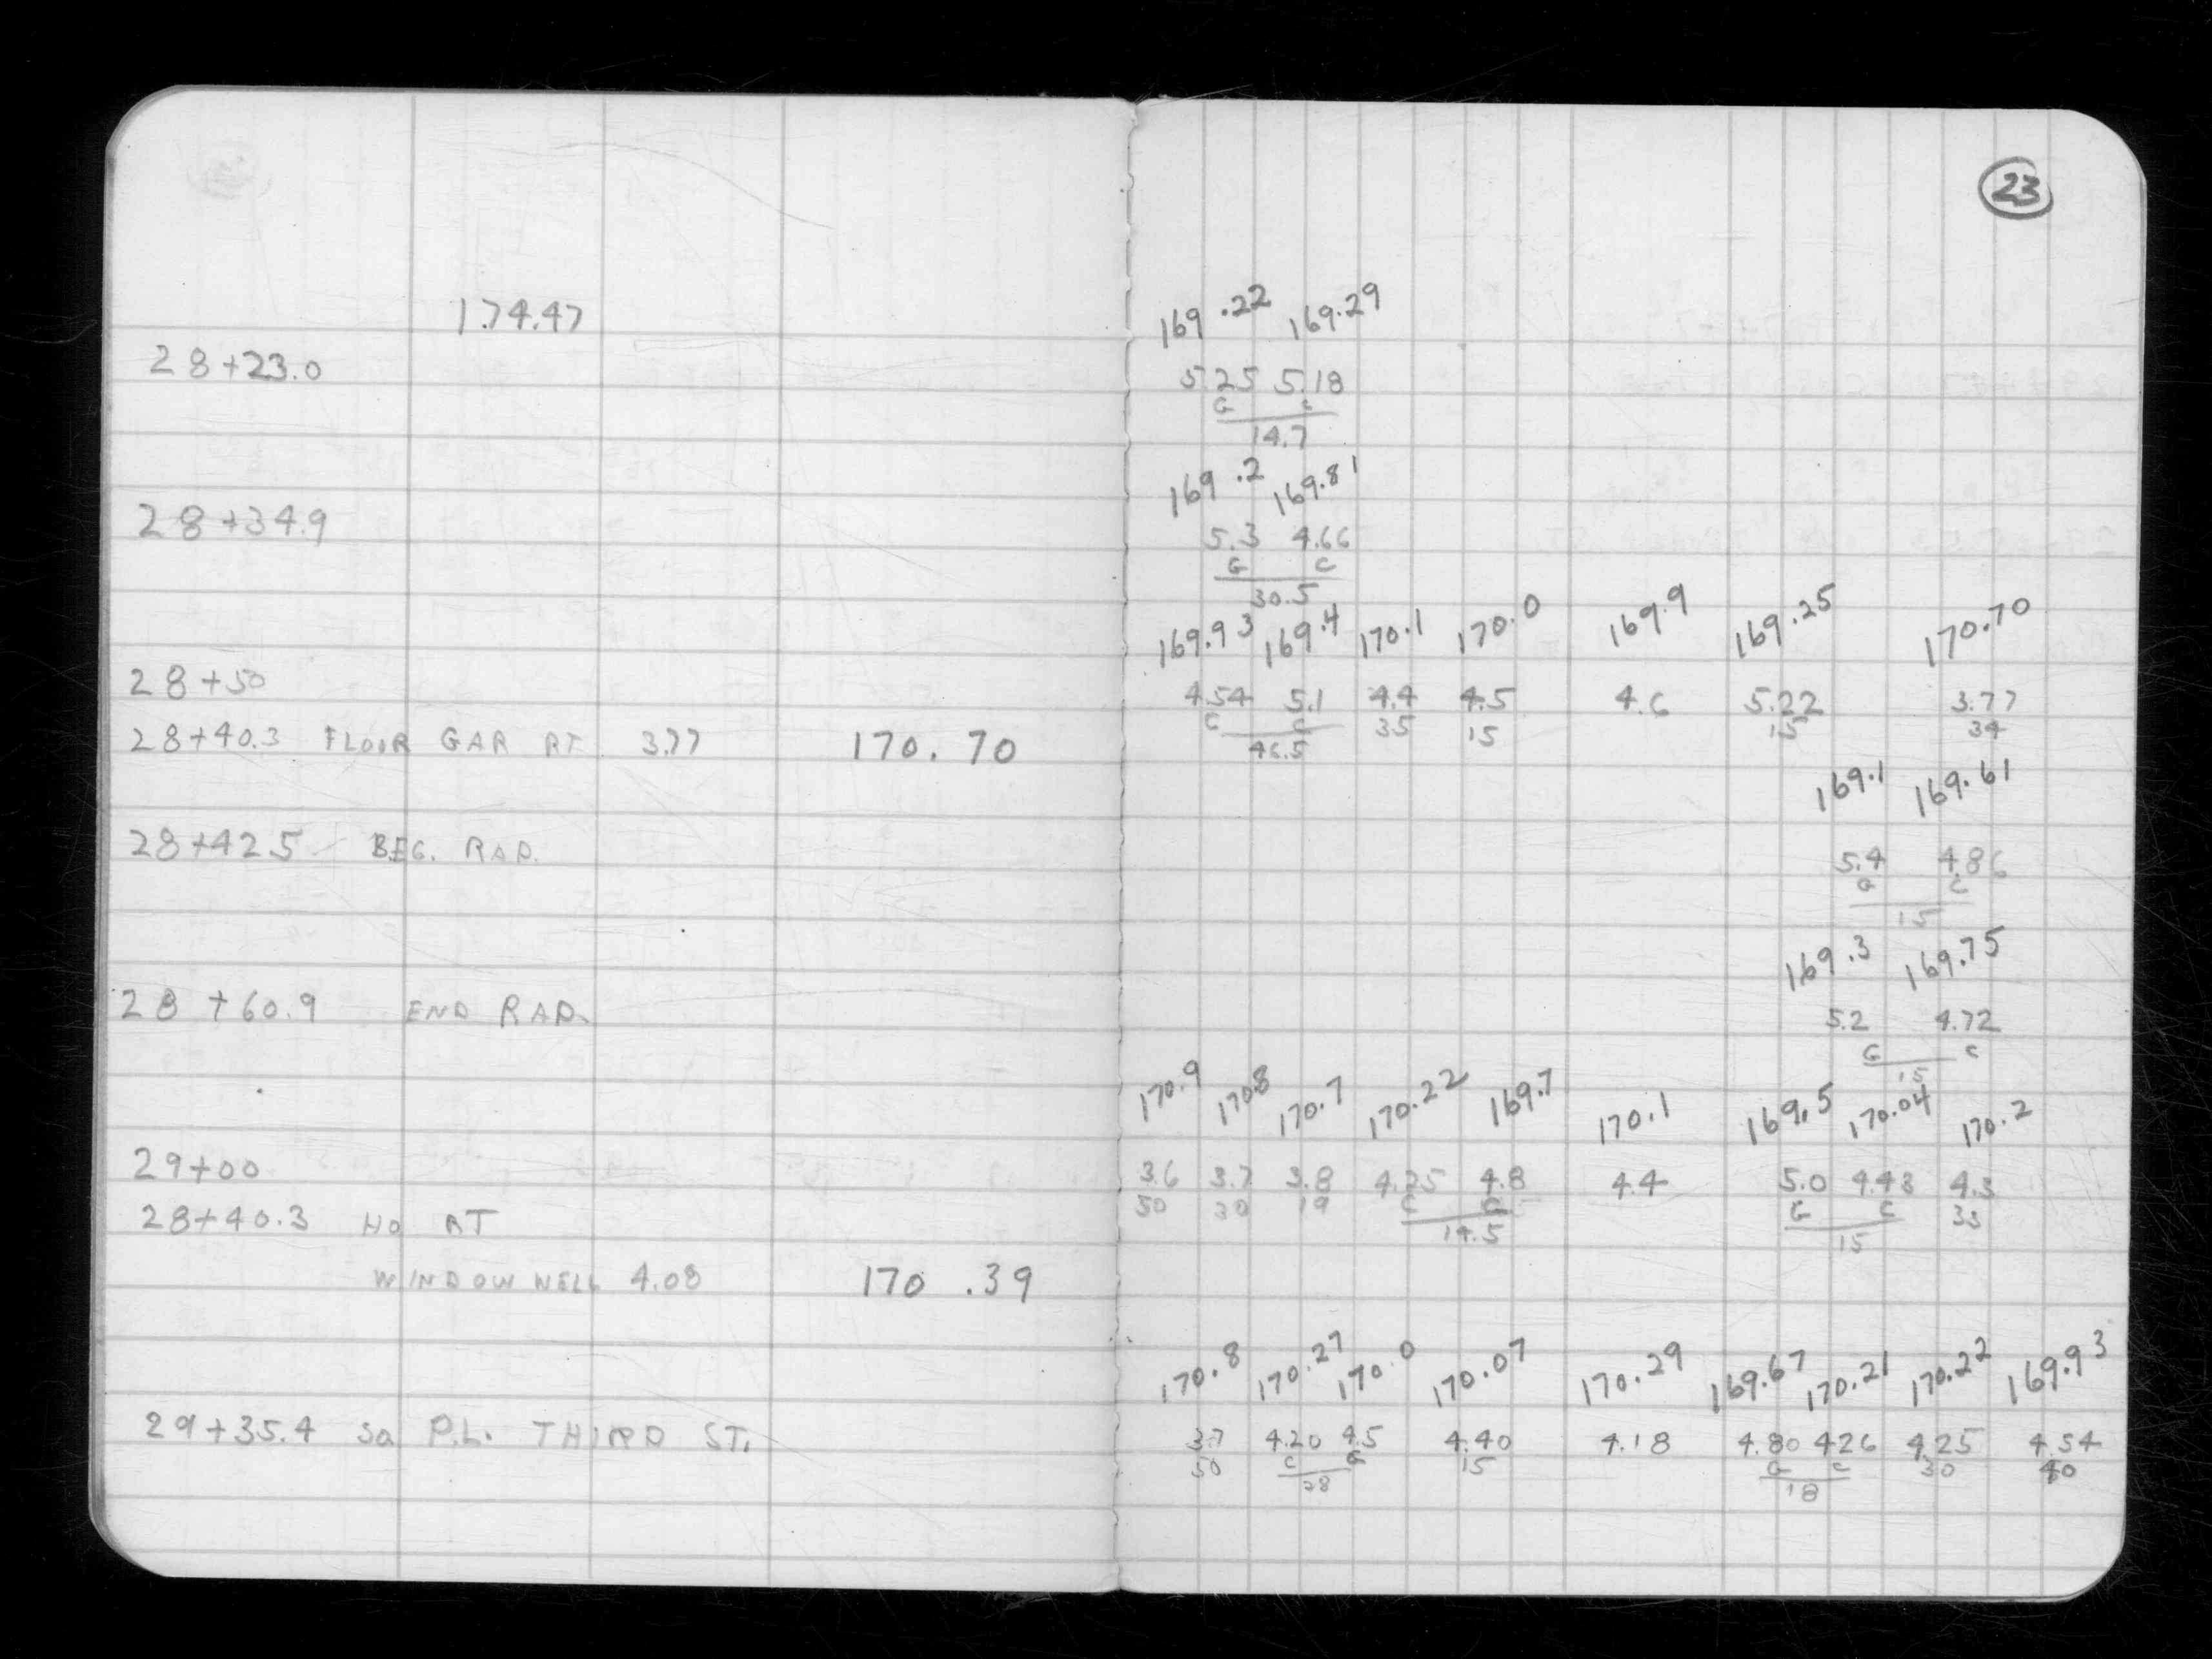 23
174.47 169.22 169.29
28+23.0 5.25 5.18
G C
14.7
169.2 169.81
28+34.9 5.3 4.66
G C
30.5
169.93 169.4 170.1 170.0 169.9 169.25 170.70
28+50 4.54 5.1 4.4 4.5 4.6 5.22 3.77
C C 35 15 15 34
28+40.3 FLOOR GAR RT 3.77 170.70 46.5
169.1 169.61
28+42.5 BEG. RAD. 5.4 4.86
G C
15
169.3 169.75
28+60.9 END RAD. 5.2 4.72
G C
15
170.9 170.8 170.7 170.22 169.7 170.1 169.5 170.04 170.2
29+00 3.6 3.7 3.8 4.25 4.8 4.4 5.0 4.43 4.3
50 30 19 C G G C 33
28+40.3 HO RT 14.5 15
WINDOW WELL 4.08 170.39
170.8 170.27 170.0 170.07 170.29 169.67 170.21 170.22 169.93
29+35.4 SO P.L. THIRD ST. 3.7 4.20 4.5 4.40 4.18 4.80 4.26 4.25 4.54
50 C G 15 G C 30 40
28 18